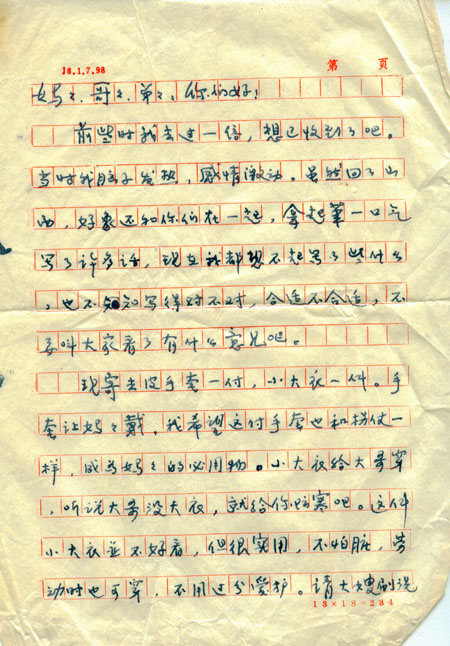 J6.1.7.98 第 页
妈々、哥々、弟々、你们好！
前些时我去过一信，想已收到了吧。
当时我脑子发热，感情激动。虽然回了山
西，好象还和你们在一起，拿起笔一口气
写了许多话，现在我都想不起写了些什么
，也不知写得对不对，合适不合适，不
要叫大家看了有什么意见吧。
现寄去皮手套一付，小大衣一件。手
套让妈々戴，我希望这付手套也和拐仗一
样，成为妈々的必用物。小大衣给大哥穿
，听说大哥没大衣，就给你防寒吧。这件
小大衣并不好看，但很实用，不怕脏，劳
动时也可穿，不用过分爱护。请大嫂别说
13×18=234